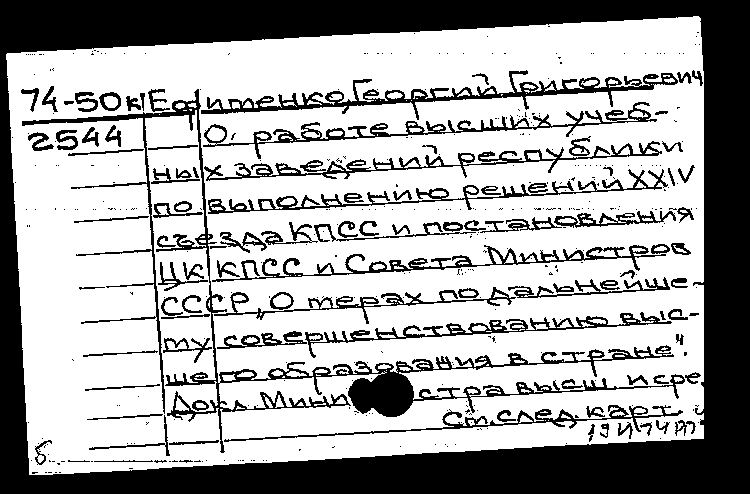 74-50к Ефитенко, Георгий Григорьевич
2544 О работе высших учеб-
ных заведений республики
по выполнению решений XXIV
съезда КПСС и постановления
ЦК КПСС и Совета Министров
СССР „О терах по дальнейше-
ту совершенствованию выс-
шего образования в стране".
Докл. Мини стра высш. и сре.
Ст. след. карт.
б.